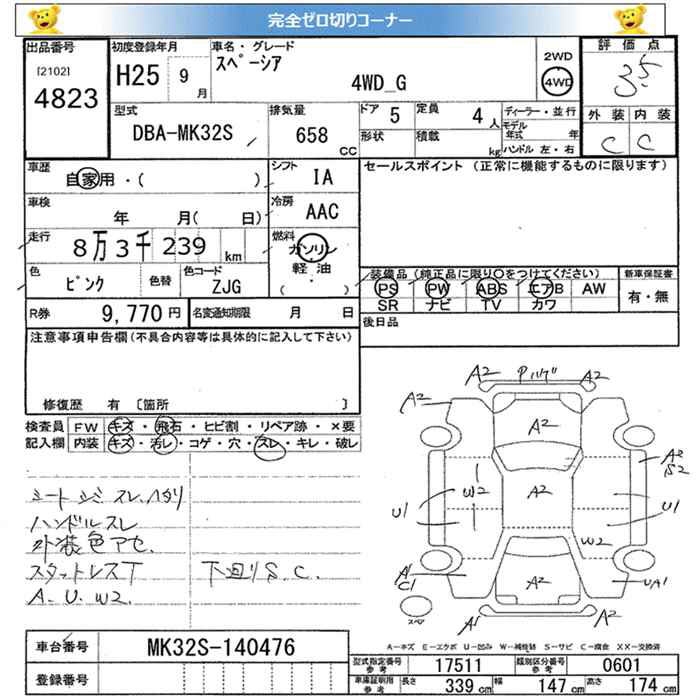 完全ゼロ切りコーナー
出品番号 初度登録年月 車名・グレード 2WD 評価点
[2102] H25 9月 スペーシア 4WD 3.5
4823 4WD_G
型式 排気量 ドア 5 定員 4人 ディーラー・並行 外装 内装
DBA-MK32S 658CC 形状 積載 kg モデル年式 年 C C
ハンドル 左・右
車歴 シフト セールスポイント (正常に機能するものに限ります)
自家用・( ) IA
車検 冷房
年 月( 日) AAC
走行 燃料
8万3千239km ガソリン
軽油
・
( )
色 ピンク 色替 色コード ZJG
装備品 (純正品に限り○をつけてください) 新車保証書
PS PW ABS エアB AW 有・無
SR ナビ TV カワ
R券 9,770円 名変通知期限 月 日 後日品
注意事項申告欄(不具合内容等は具体的に記入して下さい)
修復歴 有 〔箇所 〕
検査員 FW キズ・飛石・ヒビ割・リペア跡・×要
記入欄 内装 キズ・汚レ・コゲ・穴・スレ・キレ・破レ
シートシミスレ、ハタリ
ハンドルスレ
外装色アセ
スタットレスT 下回りS.C.
A.U.W2.
A2 Pハゲ A2
A2 A2
A2
S2
W2 A2
U1 U1
W2
A1
C1 A2 UA1
スペア A1 A2
A-キズ E-エクボ U-凹み W-補修跡 S-サビ C-腐食 XX-交換済
車台番号 MK32S-140476
登録番号
型式指定番号 参考 17511 類別区分番号 参考 0601
車庫証明用 参考 長さ 339cm 幅 147cm 高さ 174cm